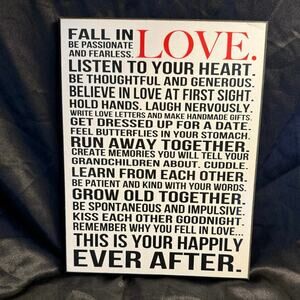 FALL IN LOVE.
BE PASSIONATE
AND FEARLESS.
LISTEN TO YOUR HEART.
BE THOUGHTFUL AND GENEROUS.
BELIEVE IN LOVE AT FIRST SIGHT.
HOLD HANDS. LAUGH NERVOUSLY.
WRITE LOVE LETTERS AND MAKE HANDMADE GIFTS.
GET DRESSED UP FOR A DATE.
FEEL BUTTERFLIES IN YOUR STOMACH.
RUN AWAY TOGETHER.
CREATE MEMORIES YOU WILL TELL YOUR
GRANDCHILDREN ABOUT. CUDDLE.
LEARN FROM EACH OTHER.
BE PATIENT AND KIND WITH YOUR WORDS.
GROW OLD TOGETHER.
BE SPONTANEOUS AND IMPULSIVE.
KISS EACH OTHER GOODNIGHT.
REMEMBER WHY YOU FELL IN LOVE...
THIS IS YOUR HAPPILY
EVER AFTER.